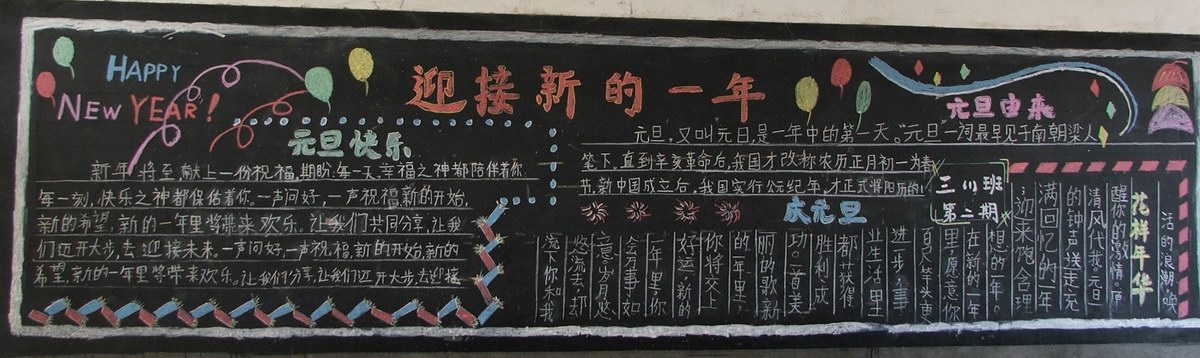 HAPPY
NEW YEAR!
迎接新的一年
元旦快乐
新年将至,献上一份祝福,期盼:每一天,幸福之神都陪伴着你
每一刻,快乐之神都保佑着你。一声问好,一声祝福,新的开始,
新的希望,新的一年里将带来欢乐。让我们共同分享,让我
们迈开大步,去迎接未来。一声问好,一声祝福,新的开始,新的
希望,新的一年里将带来欢乐。让我们分享,让我们迈开大步,去迎接
元旦由来
元旦,又叫元日,是一年中的第一天。"元旦一词最早见于南朝梁人
笔下,直到辛亥革命后,我国才改称农历正月初一为春
节,新中国成立后,我国实行公元纪年,才正式将阳历的1
三(1)班
第二期
庆元旦
花样年华
活的浪潮,唤
醒你的激情。原
清风代我。元旦
的钟声送走充
满回忆的一年
迎来饱含理
想的一年。
在新的一年
里,愿意你
百尺竿头更
进步,事
业生活里
都获得
胜利成
功。首美
丽的歌新
的一年里,
你将交上
好运,新的
一年里,你
会万事如
意,岁月悠
悠流去,却
流下你和我